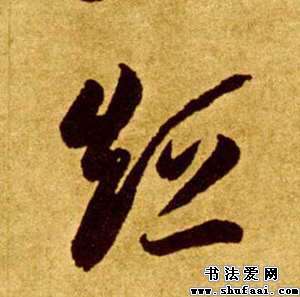 短
书法爱网
www.shufaai.com